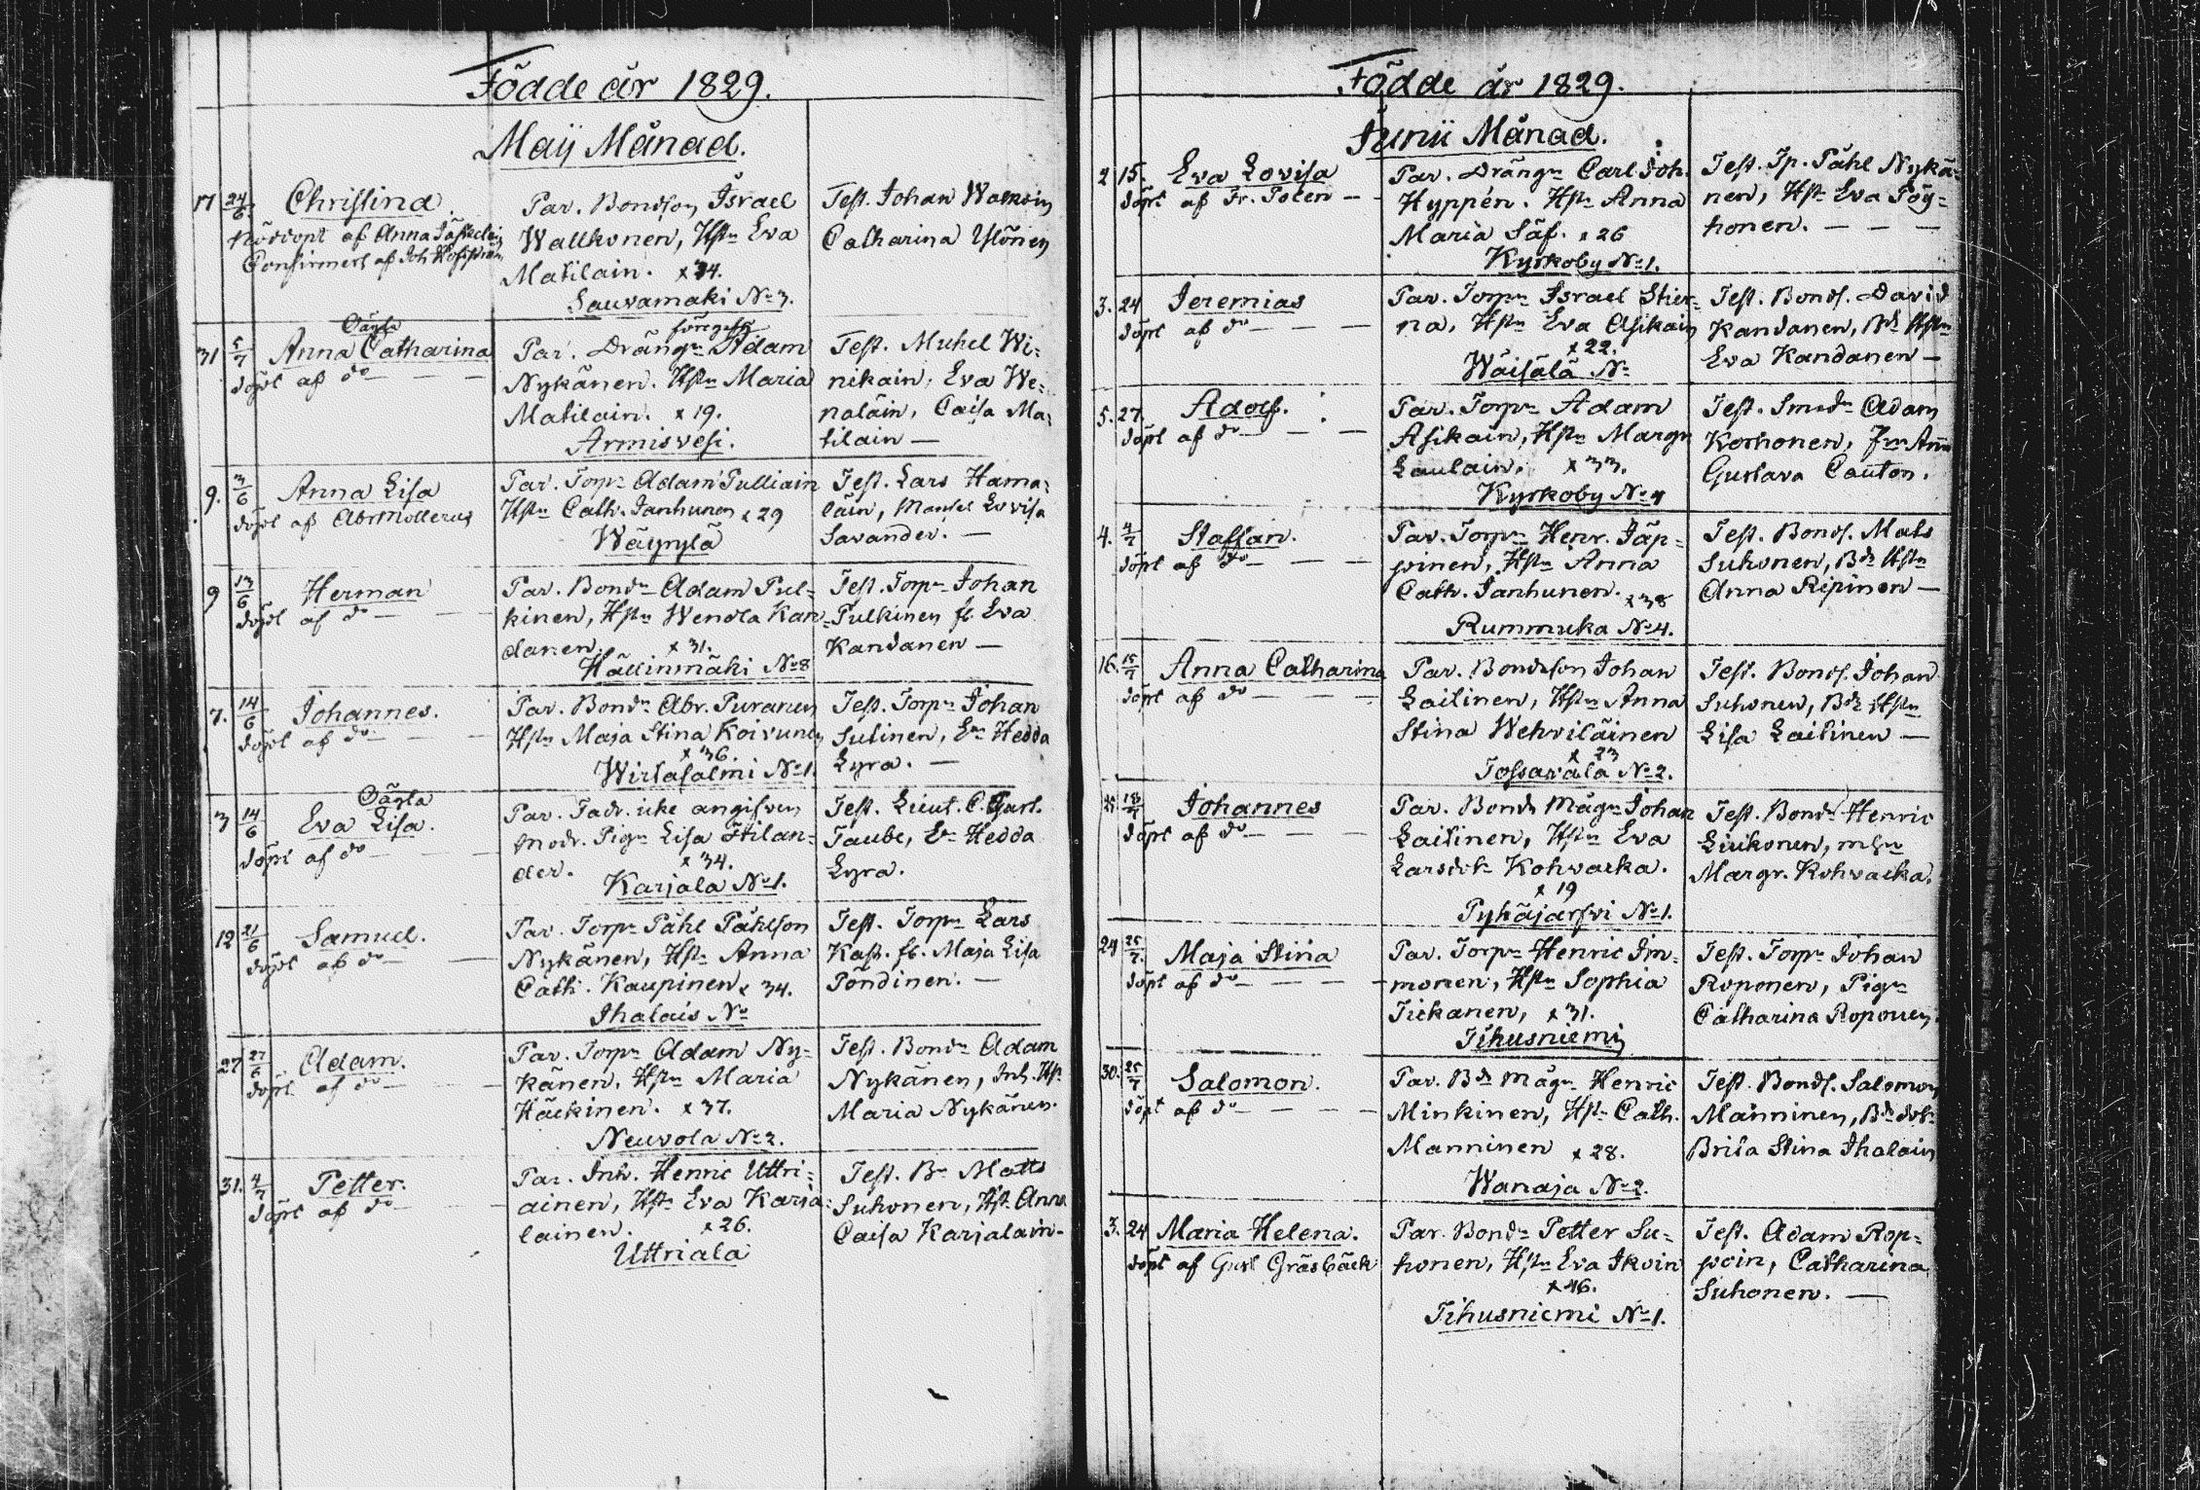 Födde år 1829.
Maij Månad.
17 24/6. Christina.
nöddöpt af Anna
Confirmert af Joh
Par. Bondson Israel
Wallkonen, Hstn Eva
Matilain. x 34.
Sauvamäki No 3.
Test. Johan
Catharina Ylönen
31 5/7 Oägta Anna Catharina
döpt af do
Par. Drängn föregifn Adam
Nykänen. Hstn Maria
Matilain. x 19.
Armisvesi.
Test. Michel Wi=
nikain, Eva We=
naläin, Caisa Ma=
tilain —
9. 3/6 Anna Lisa
döpt af Abr Mollerus
Par. Torpn Adam Tulliain
Hstn Cath. Janhunen x 29
Wäyrylä
Test. Lars Hama=
läin, Mamsel Lovisa
Savander. —
9 13/6 Herman
döpt af do —
Par. Bondn Adam Pul=
kinen, Hstn Wendla Kan=
danen. x 31.
Hällinmäki No 8
Test. Torpn Johan
Pulkinen fl. Eva
Kandanen —
7. 14/6 Johannes.
döpt af do
Par. Bondn Abr. Puranen
Hstn Maja Stina Koivunen
x 36.
Wirtasalmi No 1.
Test. Torpn Johan
Sutinen, Hedda
Lyra. —
3 14/6 Oägta Eva Lisa.
döpt af do
Par. Fadr. icke angifven
modr. Pign Lisa Stilan=
der. x 34.
Karjala No 1.
Test. Lieut. C. Gust.
Taube, Hedda
Lyra.
12 21/6 Samuel.
döpt af do
Par. Torpn Påhl Påhlson
Nykänen, Hstn Anna
Cath. Kaupinen x 34.
Ihalais No
Test. Torpn Lars
Kast. fl. Maja Lisa
Pöndinen. —
27 27/6 Adam.
döpt af do
Par. Torpn Adam Ny=
känen, Hstn Maria
Häckinen. x 37.
Neuvola No 2.
Test. Bondn Adam
Nykänen, Inh. Hst.
Maria Nykänen.
31. 4/7 Petter.
döpt af do
Par. Inh. Henric Uttri=
ainen, Hstn Eva Karja=
lainen. x 26.
Uttriala
Test. Bn Matts
Suhonen, Hst Anna
Caisa Karjalain.
Födde år 1829.
Junii Månad.
2 15. Eva Lovisa
döpt af Fr. Poten —
Par. Drängn Carl Joh.
Hyppén. Hstn Anna
Maria Säf. x 26
Kyrkoby No 1.
Test. Tp. Påhl Nykä=
nen, Hstn Eva Pöy=
honen. — — —
3. 24 Jeremias
döpt af do — — —
Par. Torpn Israel Stier=
na, Hstn Eva Asikain
x 22.
Wäisälä No
Test. Bonds. David
Kandanen, Bd Hstn
Eva Kandanen —
5. 27. Adolf.
döpt af do — —
Par. Torpn Adam
Asikain, Hstn Margr
Laulain. x 33.
Kyrkoby No 4
Test. Smedn Adam
Korhonen, Frn Anna
Gustava Cauton.
4. 4/7 Staffan.
döpt af do — —
Par. Torpn Henr. Jäp=
pinen, Hstn Anna
Cath. Janhunen. x 38
Rummuka No 4.
Test. Bonds. Mats
Suhonen, Bds Hstn
Anna Ripinen —
16. 15/7 Anna Catharina
döpt af do — —
Par. Bondeson Johan
Laitinen, Hstn Anna
Stina Wehviläinen
x 23
Tossavala No 2.
Test. Bonds. Johan
Suhonen, Bds Hstn
Lisa Laitinen —
25 18/7 Johannes
döpt af do — —
Par. Bonde Mågn Johan
Laitinen, Hstn Eva
Larsdtr Kohvacka.
x 19
Pyhäjärfvi No 1.
Test. Bondn Henric
Liukonen,
Margr. Kohvacka.
24 25/7. Maja Stina
döpt af do — — —
Par. Torpn Henric Im=
monen, Hstn Sophia
Tickanen, x 31.
Tihusniemi
Test. Torpn Johan
Roponen, Pign
Catharina Roponen.
30. 25/7 Salomon.
döpt af do — — —
Par. Bds Mågn Henric
Minkinen, Hstn Cath.
Manninen x 28.
Wanaja No 2.
Test. Bonds. Salomon
Manninen, Bds dotr
Brita Stina Ihalain
3. 24 Maria Helena.
döpt af Gust Gräsbäck
Par. Bondn Petter Su=
honen, Hstn Eva Ikoin
x 46.
Tihusniemi No 1.
Test. Adam Rop=
poin, Catharina
Suhonen. —